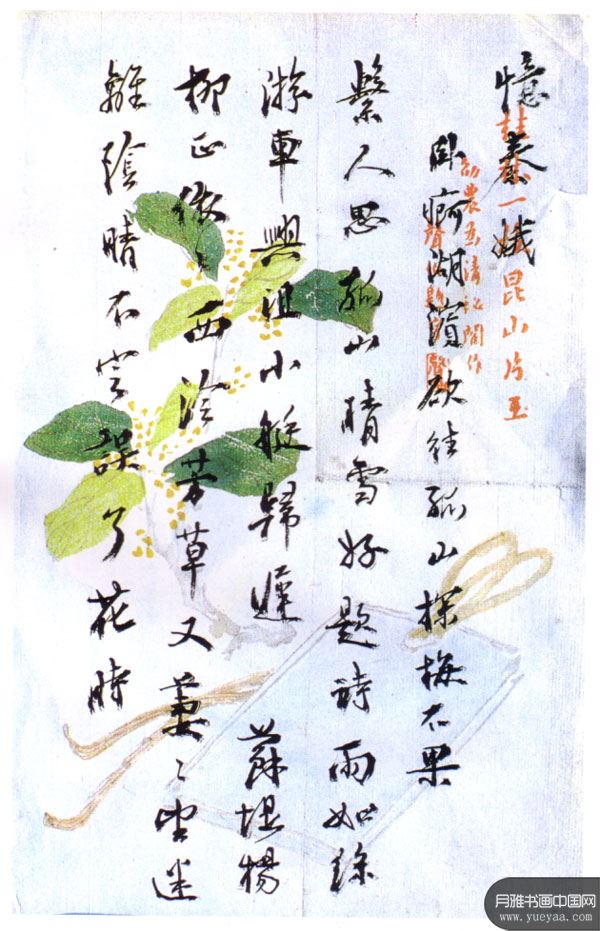 憶秦娥
桂林一枝昆山片玉
卧疴湖濱欲往孤山探梅不果
為清祕閣作
縈人思孤山晴雪好題詩雨如絲
游車興阻小艇歸遲 蘇堤楊
柳正依々西泠芳草又萋々望迷
離陰晴不定誤了花時
月雅书画中国网
www.yueyaa.com